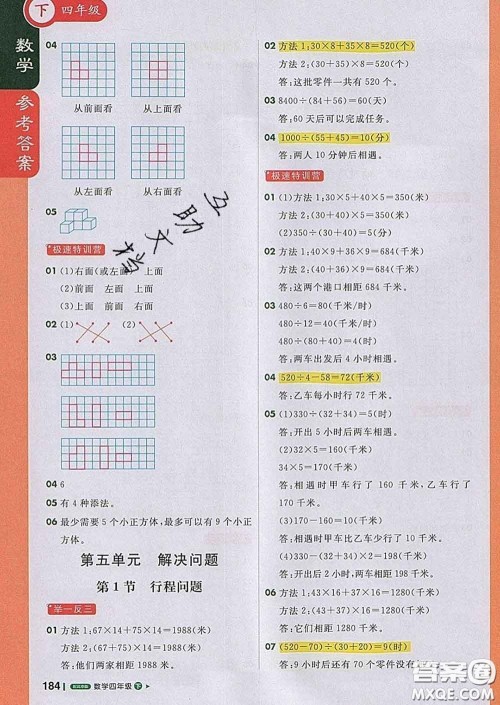 下 四年级
数学
参考答案
04
从前面看 从上面看
从左面看 从右面看
05
极速特训营
01 (1)右面(或左面) 上面
(2)前面 左面 上面
(3)上面 前面 右面
02 (1) (2)
03
04 6
05 有4种添法。
06 最少需要5个小正方体,最多可以有9个小正方体。
第五单元 解决问题
第1节 行程问题
举一反三
01 方法1:67×14+75×14=1988(米)
方法2:(67+75)×14=1988(米)
答:他们两家相距1988米。
184 数学四年级 下
02 方法1:30×8+35×8=520(个)
方法2:(30+35)×8=520(个)
答:这批零件一共有520个。
03 8400÷(84+56)=60(天)
答:60天后可以完成任务。
04 1000÷(55+45)=10(分)
答:两人10分钟后相遇。
极速特训营
01 (1)方法1:30×5+40×5=350(米)
方法2:(30+40)×5=350(米)
(2)350÷(30+40)=5(分)
02 方法1:40×9+36×9=684(千米)
方法2:(40+36)×9=684(千米)
答:这两个港口相距684千米。
03 480÷6=80(千米/时)
480÷12=40(千米/时)
480÷(80+40)=4(时)
答:两车出发后4小时相遇。
04 520÷4-58=72(千米)
答:乙车每小时行72千米。
05 (1)330÷(32+34)=5(时)
答:5小时后两车相遇。
(2)32×5=160(千米)
34×5=170(千米)
答:相遇时甲车行了160千米,乙车行了170千米。
(3)170-160=10(千米)
答:相遇时甲车比乙车少行10千米。
(4)330-(32+34)×2=198(千米)
答:开出2小时后,两车相距198千米。
06 方法1:43×16+37×16=1280(千米)
方法2:(43+37)×16=1280(千米)
07 (520-70)÷(30+20)=9(时)
互助文档
答案圈
MXQE.COM